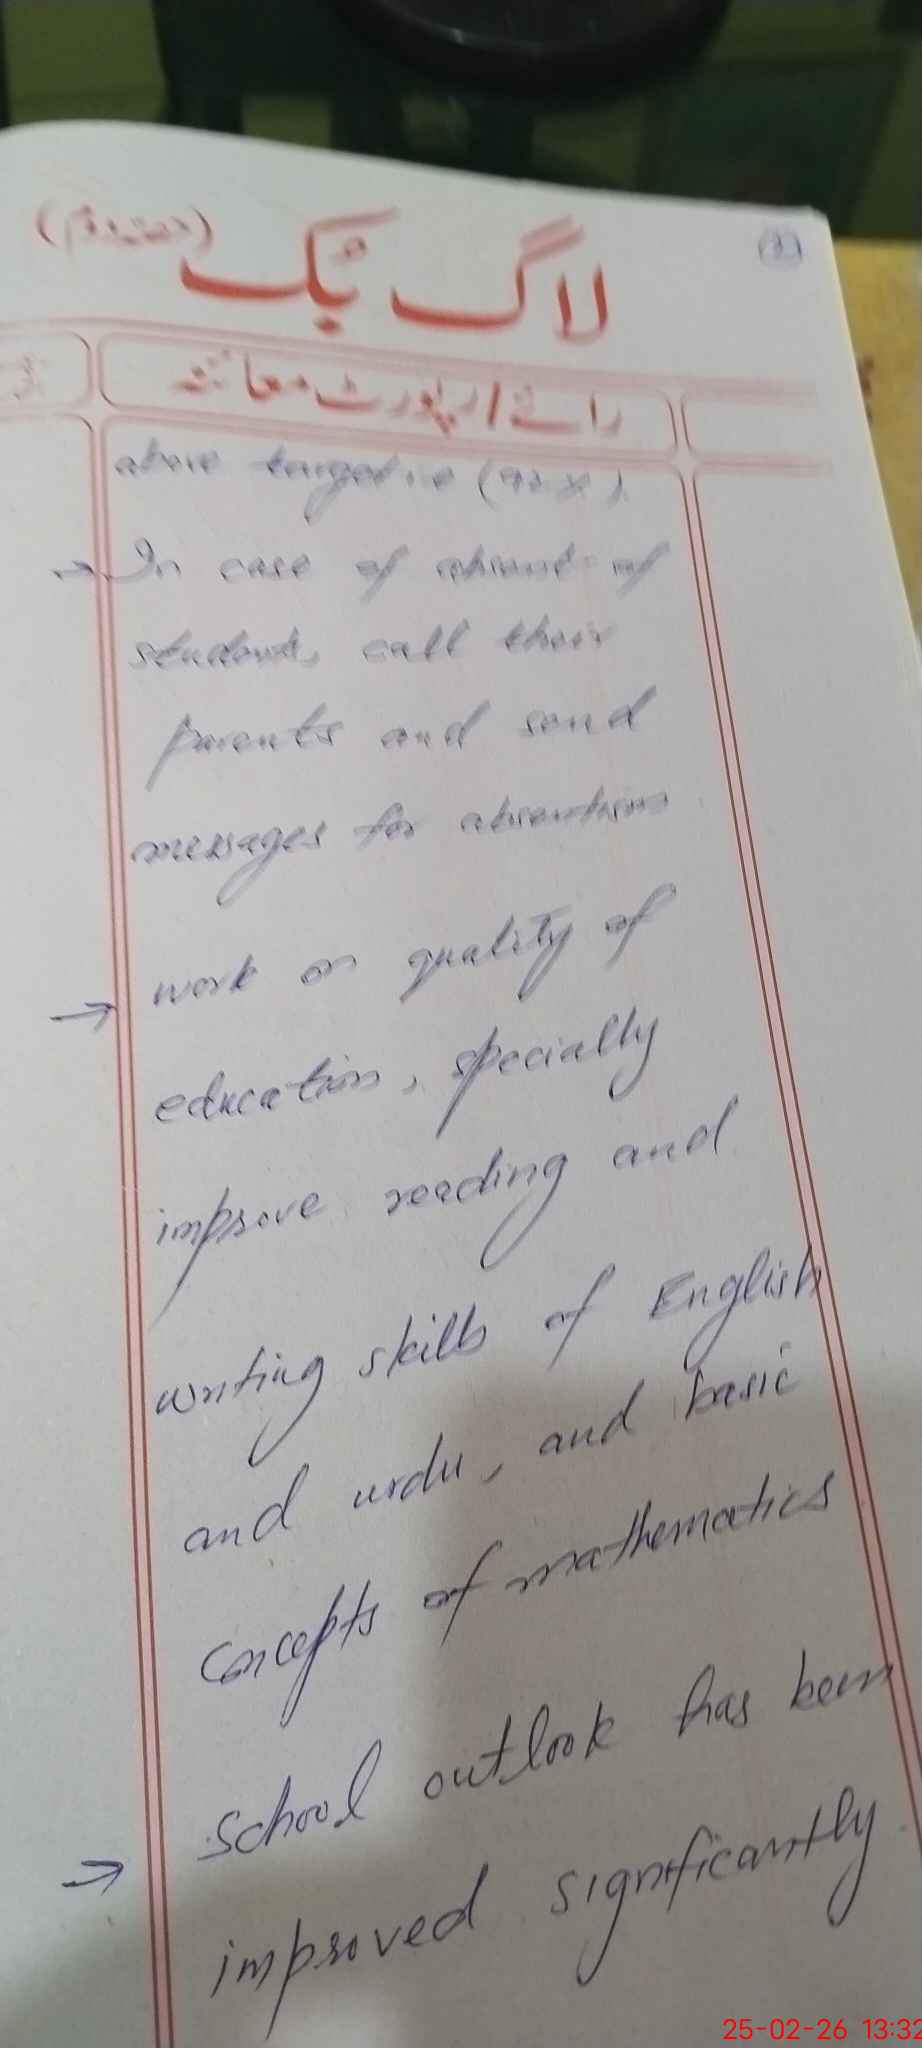 لاگ بک (حصہ دوم)
رائے / رپورٹ معائنہ
above target i.e (92%).
→ In case of absent of
students, call their
parents and send
messages for absentism
→ work on quality of
education, specially
improve reading and
writing skills of English
and urdu, and basic
concepts of mathematics
→ school outlook has been
improved significantly
25-02-26 13:32